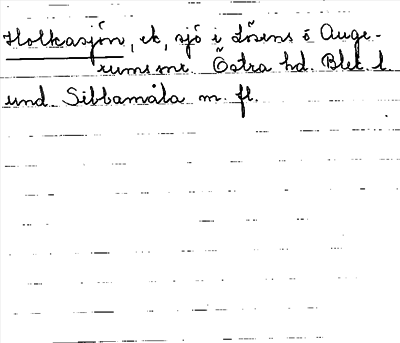 Holkasjön, ek, sjö i Lösens o Auge-
rums snr. Östra hd. Blek. l.
und. Sibbamåla m. fl.